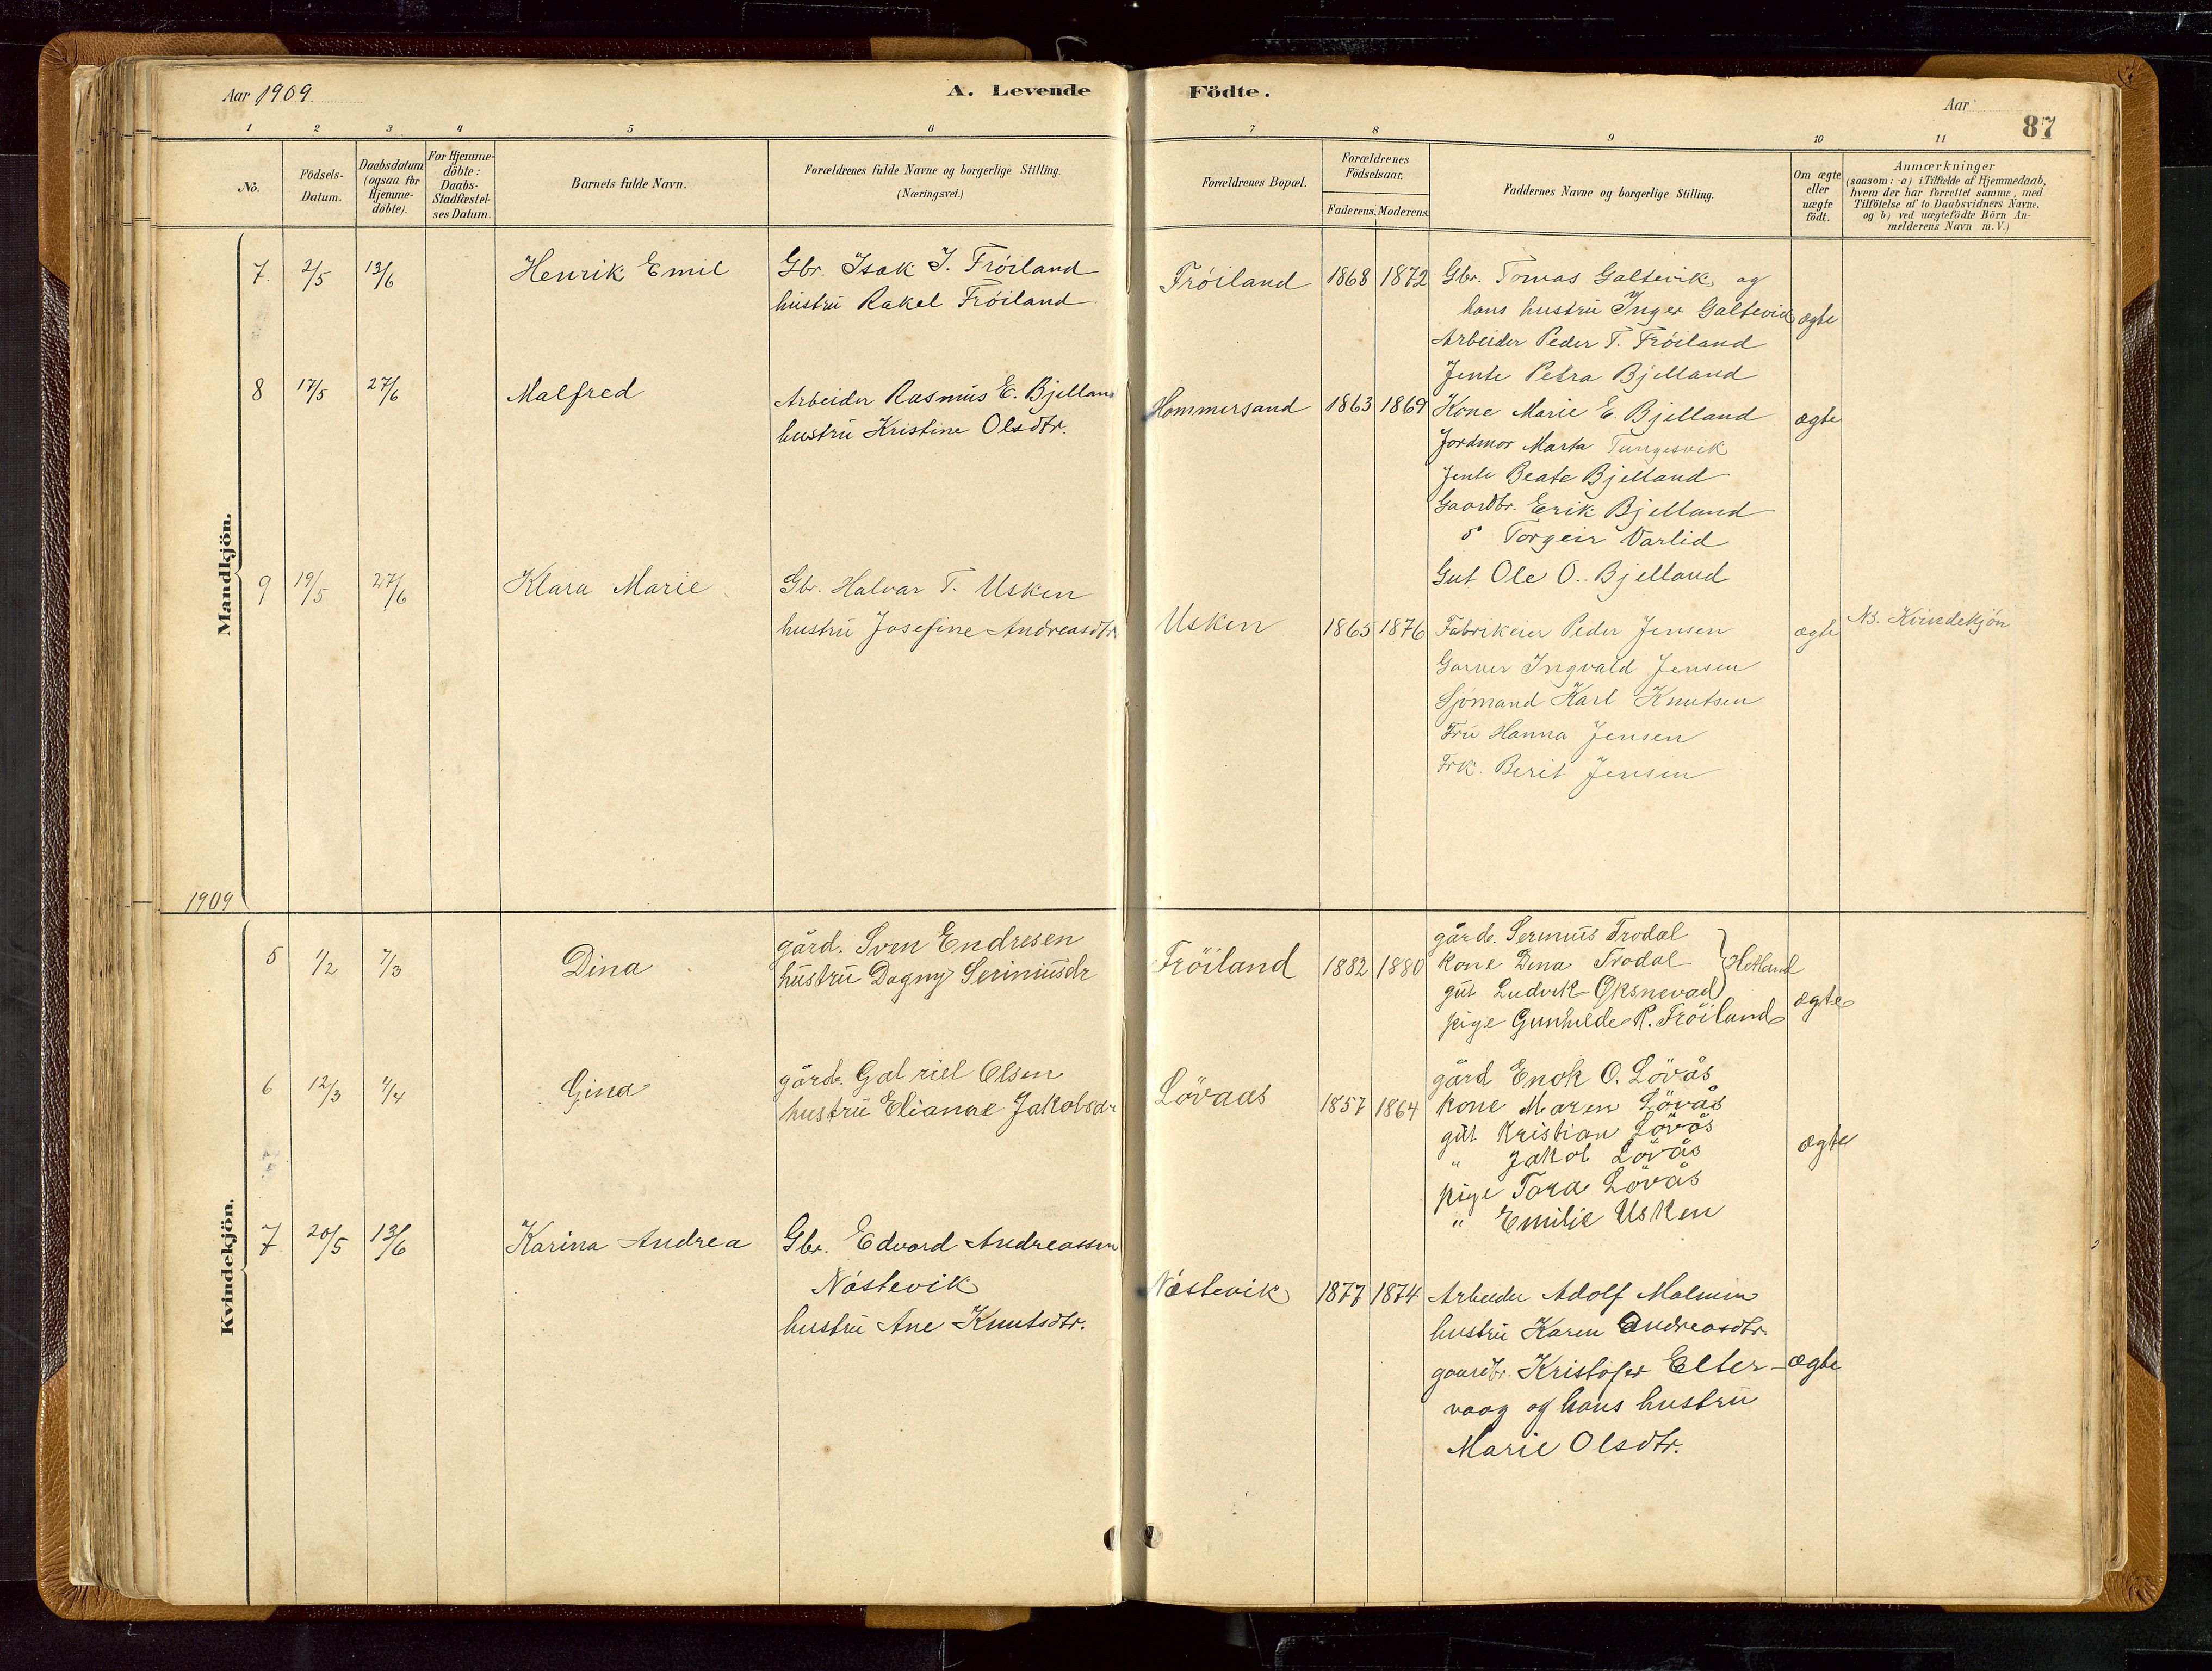 Aar 1909.
A. Levende Födte.
Aar
87
1 2 3 4 5 6 7 8 9 10 11
No.
Födsels-Datum.
Daabsdatum (ogsaa for Hjemme-döbte).
For Hjemme-döbte: Daabs-Stadfæstel-ses Datum.
Barnets fulde Navn.
Forældrenes fulde Navne og borgerlige Stilling.
(Næringsvei.)
Forældrenes Bopæl.
Forældrenes Födselsaar.
Faderens. Moderens.
Faddernes Navne og borgerlige Stilling.
Om ægte eller uægte födt.
Anmærkninger
(saasom: a) i Tilfælde af Hjemmedaab,
hvem der har forrettet samme, med
Tilföielse af to Daabsvidners Navne.
og b) ved uægtefödte Börn An-
melderens Navn m.V.)
Mandkjön.
7. 2/5 13/6 Henrik Emil
Gbr. Isak I. Fröiland
hustru Rakel Fröiland
Fröiland 1868 1872
Gbr. Tomas Galtevik og
hans hustru Inger Galtevik
Arbeider Peder T. Fröiland
Jente Petra Bjelland
ægte
8 17/5 27/6 Malfred
Arbeider Rasmus E. Bjelland
hustru Kristine Olsdtr.
Hommersand 1863 1869
Kone Marie E. Bjelland
Jordmor Marta Tungesvik
Jente Beate Bjelland
Gaardbr. Erik Bjelland
" Torgeir Varlid
Gut Ole O. Bjelland
ægte
9 19/5 27/6 Klara Marie
Gbr. Halvar T. Usken
hustru Josefine Andreasdtr
Usken 1865 1876
Fabrikeier Peder Jensen
Garver Ingvald Jensen
Sjömand Karl Knutsen
Fru Hanna Jensen
Frk. Berit Jensen
ægte
NB. Kvindekjön
1909
Kvindekjön.
5 1/2 7/3 Dina
gård. Sven Endresen
hustru Dagny Seriniusdr
Fröiland 1882 1880
gårdb. Sernius Trodal
kone Dina Trodal } Hetland
gut Ludvik Oksnevad
pige Gunhilde R. Fröiland
ægte
6 12/3 4/4 Gina
gårdb. Gabriel Olsen
hustru Elianne Jakobsdr
Lövaas 1857 1864
gård Enok O. Lövås
kone Maren Lövås
gut Kristian Lövås
" Jakob Lövås
pige Tora Lövås
" Emilie Usken
ægte
7. 20/5 13/6 Karina Andrea
Gbr. Edvard Andreassen
Nåstevik
hustru Ane Knutsdtr.
Nåstevik 1877 1874
Arbeider Adolf Malmin
hustru Karen Andreasdtr.
gaardbr. Kristofer Elter-
vaag og hans hustru
Marie Olsdtr.
ægte